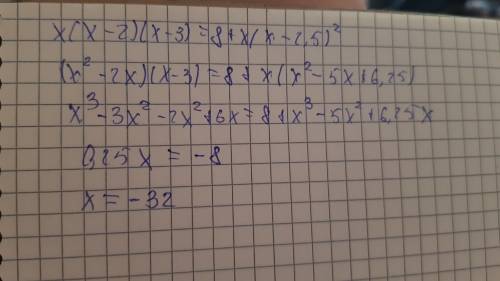 x(x-2)(x-3)=8+x(x-2,5)²
(x²-2x)(x-3)=8+x(x²-5x+6,25)
x³-3x²-2x²+6x=8+x³-5x²+6,25x
0,25x=-8
x=-32